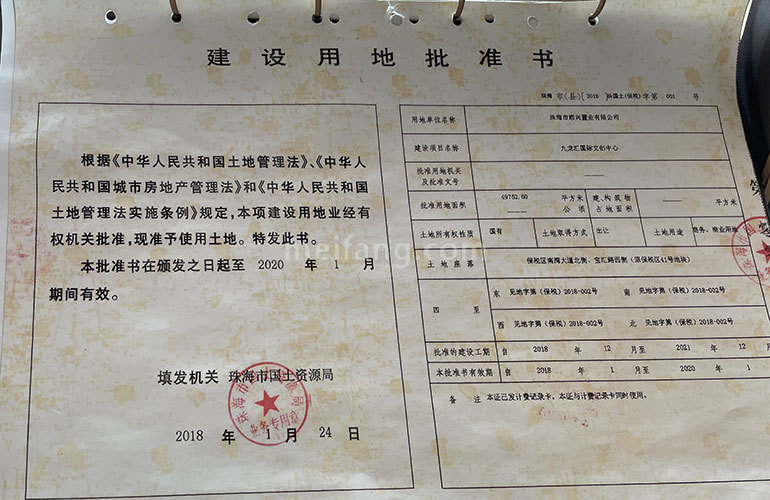 建设用地批准书
根据《中华人民共和国土地管理法》、《中华人
民共和国城市房地产管理法》和《中华人民共和国
土地管理法实施条例》规定，本项建设用地业经有
权机关批准，现准予使用土地。特发此书。
本批准书在颁发之日起至 2020 年 1 月
期间有效。
填发机关 珠海市国土资源局
业务专用章
2018 年 1 月 24 日
珠海 市(县)[2018]珠国土(保税)字第 001 号
用地单位名称 珠海市熙兴置业有限公司
建设项目名称 九龙汇国际文创中心
批准用地机关
及批准文号
批准用地面积 49752.60 平方米 公顷 建、构筑物占地面积 平方米
土地所有权性质 国有 土地取得方式 出让 土地用途 商务、商业用地
土地座落 保税区南湾大道北侧、宝汇路西侧（原保税区41号地块）
四至 东 见地字第（保税）2018-002号 南 见地字第（保税）2018-002号
西 见地字第（保税）2018-002号 北 见地字第（保税）2018-002号
批准的建设工期 自 2018 年 12 月至 2021 年 12 月
本批准书有效期 自 2018 年 1 月至 2020 年 1 月
备注 本证已发计费记录卡。本证与计费记录卡同时使用。
meifang.com